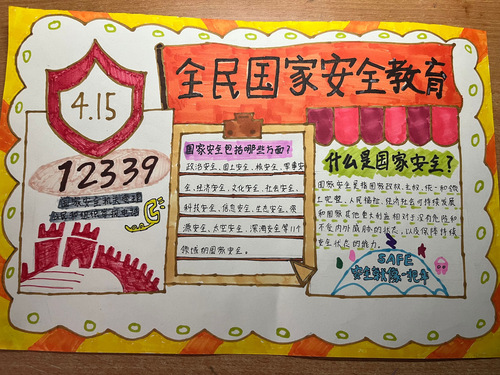 全民国家安全教育
4.15
12339
国家安全机关举报
国家安全包括哪些方面?
政治安全、国土安全、核安全、军事安
全、经济安全、文化安全、社会安全、
科技安全、信息安全、生态安全、资
源安全、太空安全、深海安全等11个
领域的国家安全。
什么是国家安全?
国家安全是指国家政权、主权、统一和领
土完整、人民福祉、经济社会可持续发展
和国家其他重大利益相对于没有危险和
不受内外威胁的状态,以及保障持续
安全状态的能力。
SAFE
安全就像一把伞